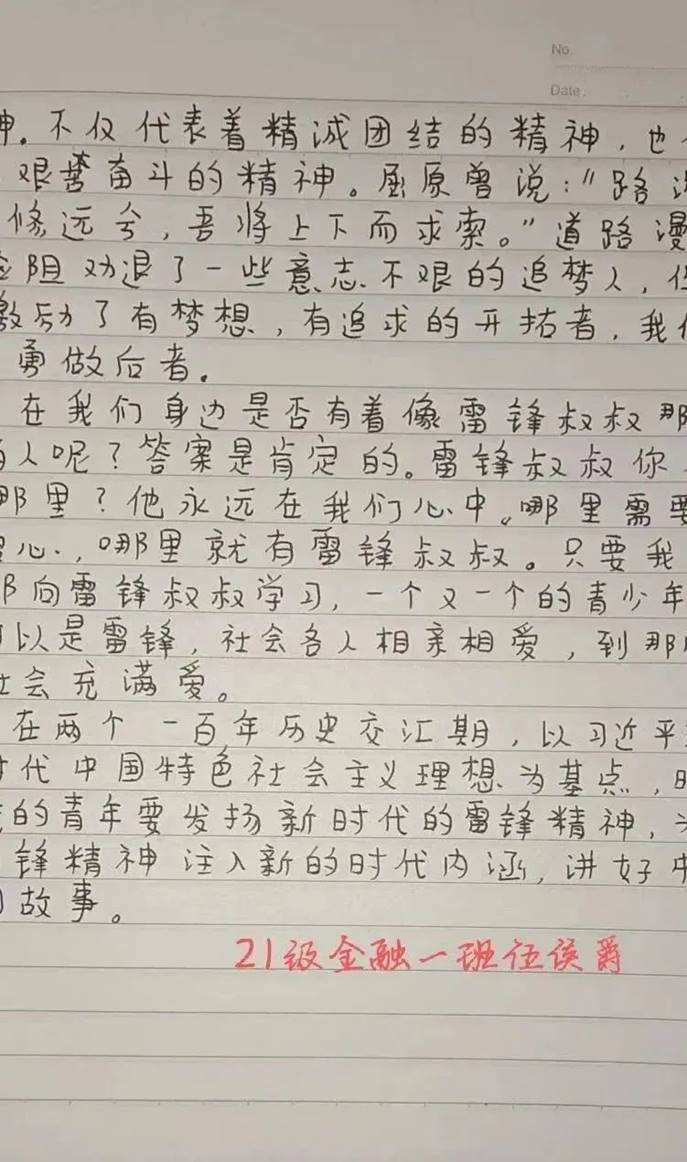 No.
Date.
神。不仅代表着精诚团结的精神，也
艰苦奋斗的精神。屈原曾说："路漫
修远兮，吾将上下而求索。"道路漫
险阻劝退了一些意志不艰的追梦人，但
激励了有梦想，有追求的开拓者，我们
勇做后者。
在我们身边是否有着像雷锋叔叔那
的人呢？答案是肯定的。雷锋叔叔你
那里？他永远在我们心中。哪里需要
爱心，哪里就有雷锋叔叔。只要我
都向雷锋叔叔学习，一个又一个的青少年
可以是雷锋，社会各人相亲相爱，到那
社会充满爱。
在两个一百年历史交汇期，以习近平
时代中国特色社会主义理想为基点，
的青年要发扬新时代的雷锋精神，
锋精神注入新的时代内涵，讲好中
故事。
21级金融一班伍侯爵